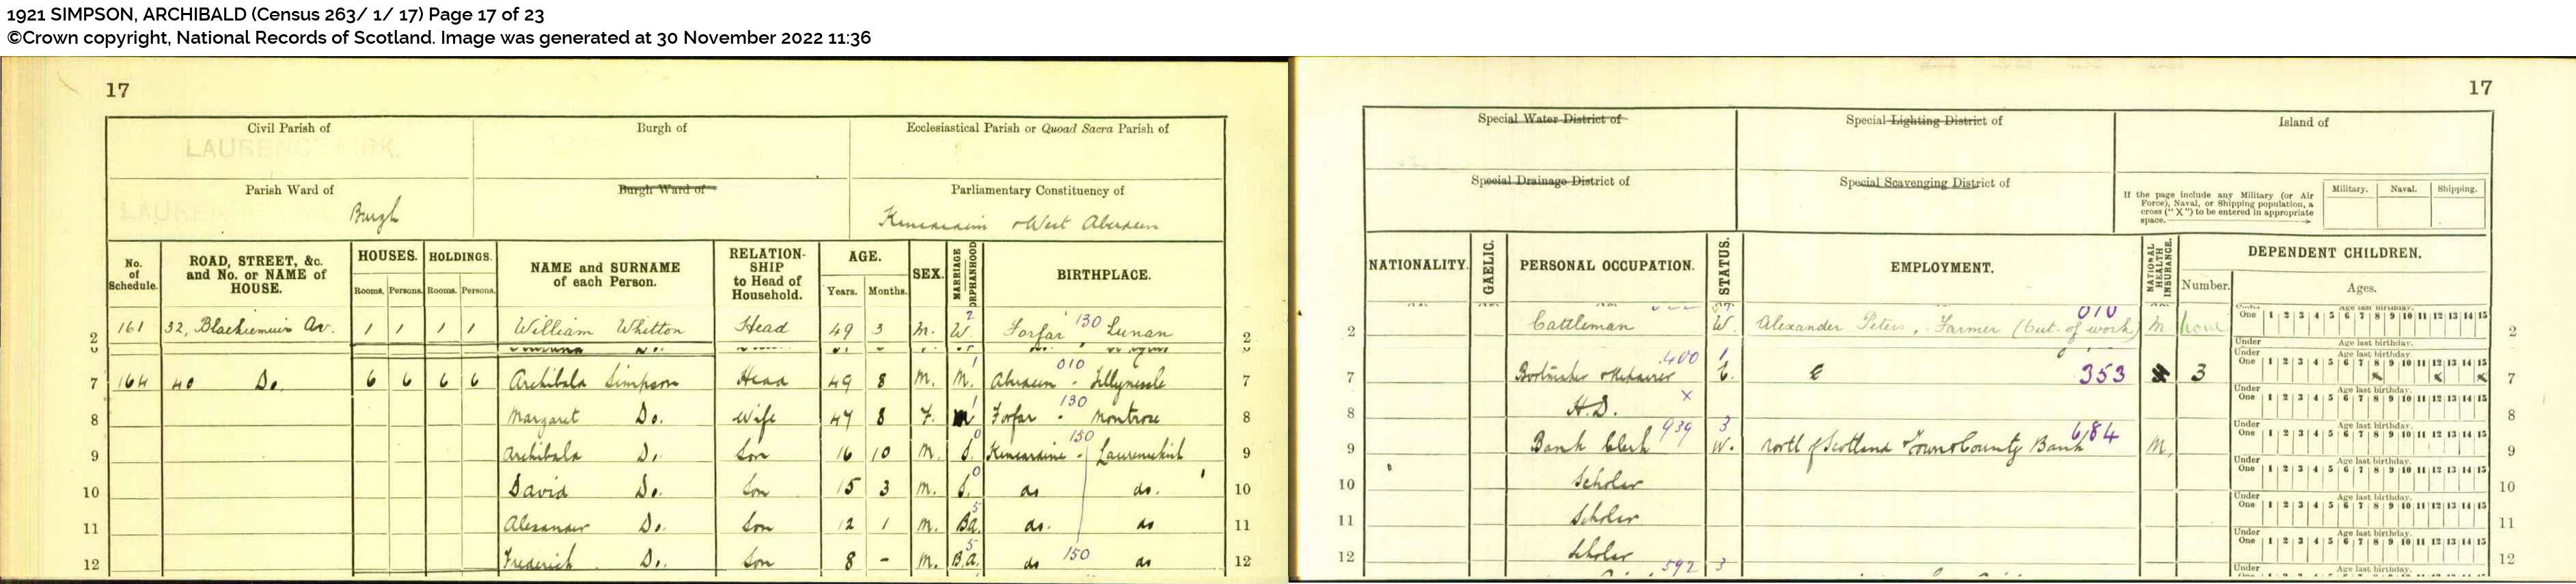 1921 SIMPSON, ARCHIBALD (Census 263/ 1/ 17) Page 17 of 23
©Crown copyright, National Records of Scotland. Image was generated at 30 November 2022 11:36
17
Civil Parish of Burgh of Ecclesiastical Parish or Quoad Sacra Parish of
LAURENCEKIRK.
Parish Ward of Burgh Ward of Parliamentary Constituency of
Burgh Kincardine & West Aberdeen
No. of Schedule. ROAD, STREET, &c. and No. or NAME of HOUSE. HOUSES. HOLDINGS. NAME and SURNAME of each Person. RELATION-SHIP to Head of Household. AGE. SEX. MARRIAGE ORPHANHOOD BIRTHPLACE.
Rooms. Persons. Rooms. Persons. Years. Months.
2 161 32, Blackiemuir Av. 1 1 1 1 William Whitton Head 49 3 M. W. 2 Forfar 130 Lunan 2
7 164 40 Do. 6 6 6 6 Archibald Simpson Head 49 8 M. M. 1 Aberdeen - 010 Tillynessle 7
8 Margaret Do. Wife 47 8 F. M 1 Forfar - 130 Montrose 8
9 Archibald Do. Son 16 10 M. S. 0 Kincardine - 150 Laurencekirk 9
10 David Do. Son 15 3 M. S. 0 do do. 10
11 Alexander Do. Son 12 1 M. B.A. 5 do. do 11
12 Frederick Do. Son 8 - M. B.A. 5 do 150 do 12
17
Special Water District of Special Lighting District of Island of
Special Drainage District of Special Scavenging District of
If the page include any Military (or Air Force), Naval, or Shipping population, a cross ("X") to be entered in appropriate space. Military. Naval. Shipping.
NATIONALITY. GAELIC. PERSONAL OCCUPATION. STATUS. EMPLOYMENT. NATIONAL HEALTH INSURANCE. DEPENDENT CHILDREN.
Number. Ages.
2 Cattleman W. Alexander Peters, Farmer (Out of work) 010 M none 2
Under One Age last birthday. 1 2 3 4 5 6 7 8 9 10 11 12 13 14 15
7 Bootmaker & Repairer 400 1 E. 353 3 7
Under One Age last birthday. 1 2 3 4 5 6 7 8 9 10 11 12 13 14 15
8 H.D. x 8
Under One Age last birthday. 1 2 3 4 5 6 7 8 9 10 11 12 13 14 15
9 Bank Clerk 939 3 W. North of Scotland & Town & County Bank 6/84 M. 9
Under One Age last birthday. 1 2 3 4 5 6 7 8 9 10 11 12 13 14 15
10 Scholar 10
Under One Age last birthday. 1 2 3 4 5 6 7 8 9 10 11 12 13 14 15
11 Scholar 11
Under One Age last birthday. 1 2 3 4 5 6 7 8 9 10 11 12 13 14 15
12 Scholar 12
Under One Age last birthday. 1 2 3 4 5 6 7 8 9 10 11 12 13 14 15
592 3
Under Age last birthday.